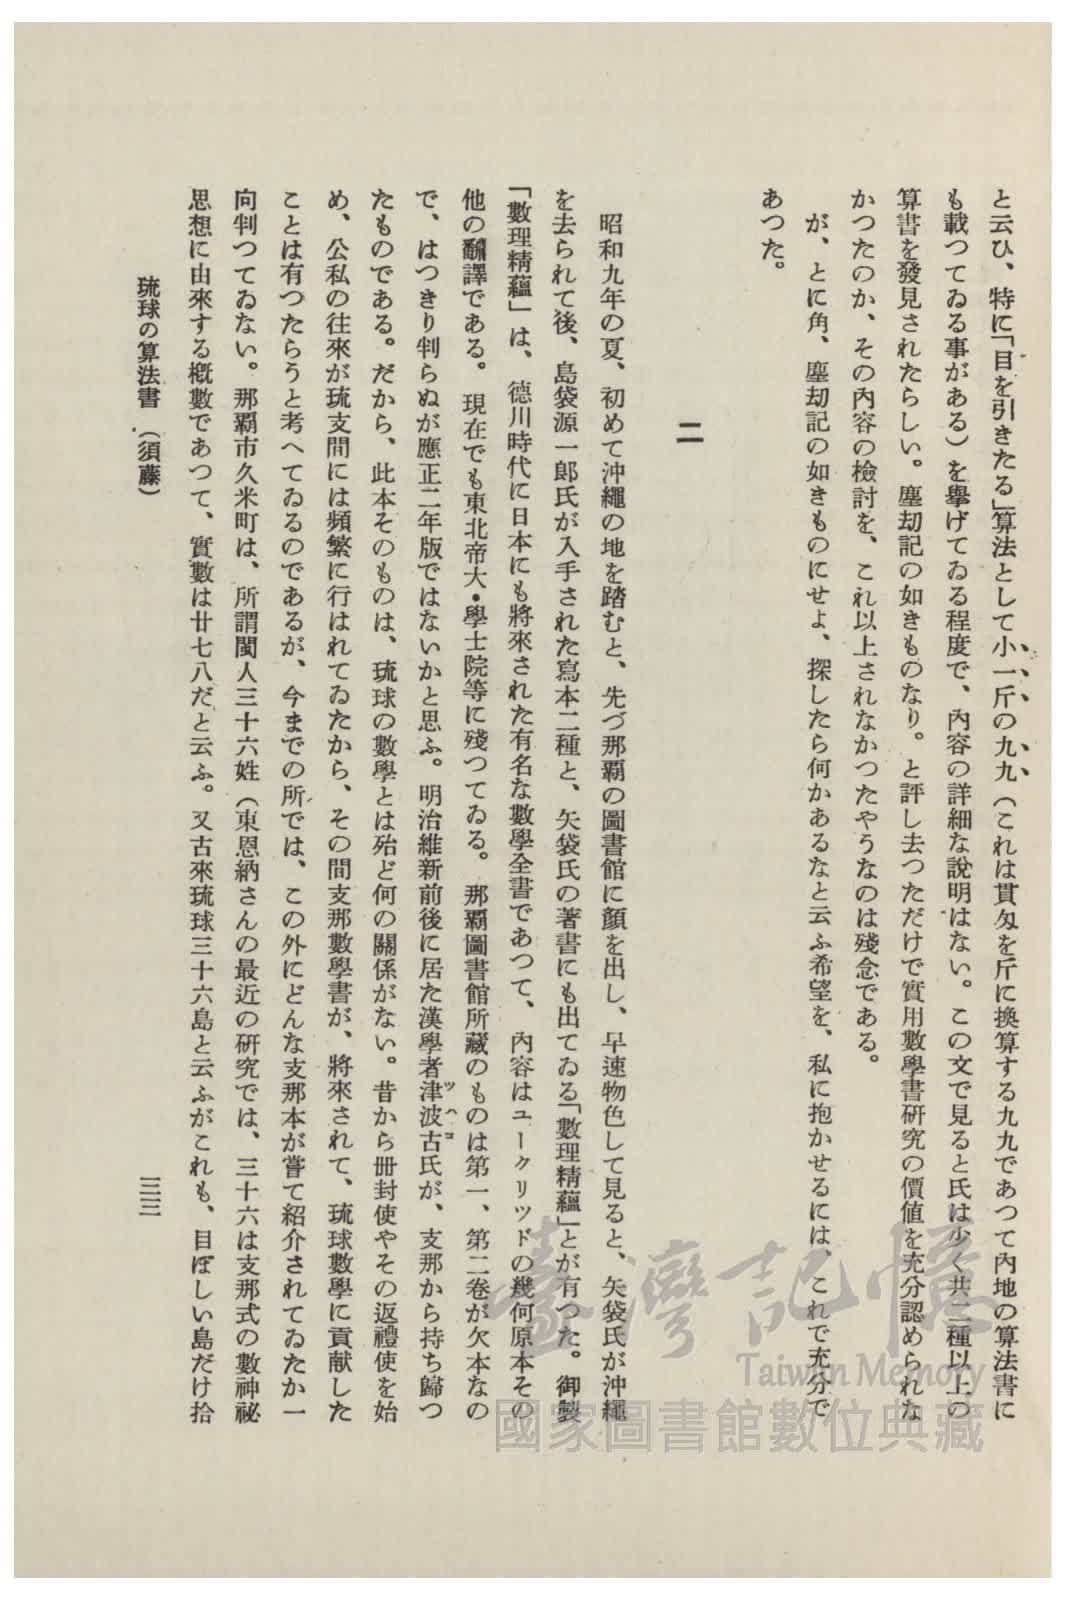 と云ひ、特に「目を引きたる」算法として小一斤の九九（これは貫匁を斤に換算する九九であつて內地の算法書に
も載つてゐる事がある）を擧げてゐる程度で、內容の詳細な說明はない。この文で見ると氏は少く共二種以上の
算書を發見されたらしい。塵刧記の如きものなり。と評し去つただけで實用數學書硏究の價値を充分認められな
かつたのか、その內容の檢討を、これ以上されなかつたやうなのは殘念である。
が、とに角、塵刧記の如きものにせよ、探したら何かあるなと云ふ希望を、私に抱かせるには、これで充分で
あつた。
二
昭和九年の夏、初めて沖繩の地を踏むと、先づ那覇の圖書館に顏を出し、早速物色して見ると、矢袋氏が沖繩
を去られて後、島袋源一郞氏が入手された寫本二種と、矢袋氏の著書にも出てゐる「數理精蘊」とが有つた。御製
「數理精蘊」は、德川時代に日本にも將來された有名な數學全書であつて、內容はユークリツドの幾何原本その
他の飜譯である。現在でも東北帝大・學士院等に殘つてゐる。那覇圖書館所藏のものは第一、第二卷が欠本なの
で、はつきり判らぬが應正二年版ではないかと思ふ。明治維新前後に居た漢學者津波古氏が、支那から持ち歸つ
ツハコ
たものである。だから、此本そのものは、琉球の數學とは殆ど何の關係がない。昔から册封使やその返禮使を始
め、公私の往來が琉支間には頻繁に行はれてゐたから、その間支那數學書が、將來されて、琉球數學に貢献した
ことは有つたらうと考へてゐるのであるが、今までの所では、この外にどんな支那本が嘗て紹介されてゐたか一
向判つてゐない。那覇市久米町は、所謂閩人三十六姓（東恩納さんの最近の硏究では、三十六は支那式の數神祕
思想に由來する槪數であつて、實數は廿七八だと云ふ。又古來琉球三十六島と云ふがこれも、目ぼしい島だけ拾
琉球の算法書（須藤）
三三
臺灣記憶
Taiwan Memory
國家圖書館數位典藏